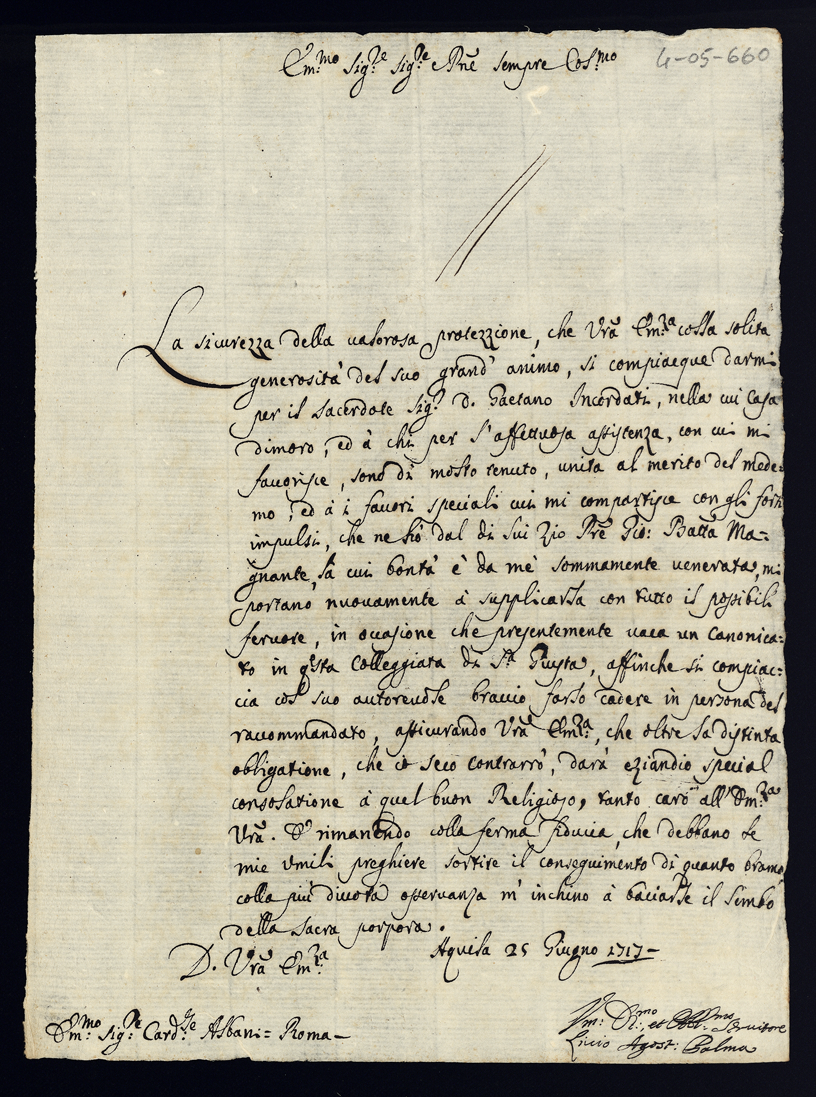 Em:mo Sig:re Sig:re e Prõne sempre Cos:mo
4-05-660
La sicurezza della valorosa protezzione, che Vrã Em:za colla solita
generosità del suo grand' animo, si compiacque darmi
per il Sacerdote Sig:r D. Gaetano Incordati, nella cui Casa
dimoro, ed à chi per l'affettuosa assistenza, con cui mi
favorisce, sono di molto tenuto, unita al merito del mede=
mo, ed à i favori speciali cui mi compartisce con gli forti
impulsi, che ne hò dal di lui Zio Prẽ Gio: Batta Ma=
gnante, la cui bontà è da mè sommamente venerata, mi
portano nuovamente à supplicarla con tutto il possibile
fervore, in occasione che presentemente vaca un Canonica=
to in q'sta Colleggiata di S:ta Giusta, affinche si compiac=
cia col suo autorevole braccio farlo cadere in persona del
raccommandato, assicurando Vrã Em:za, che oltre la distinta
obligatione, che io seco contrarrò, darà eziandio special
consolatione à quel buon Religioso, tanto caro all' Em:za
Vrã. E rimanendo colla ferma fiducia, che debbano le
mie umili preghiere sortire il conseguimento di quanto bramo,
colla più divota osservanza m' inchino à baciarle il lembo
della Sacra porpora.
D. Vrã Em:za
Aquila 25 Giugno 1717-
Em:mo Sig:re Card:le Albani= Roma-
Vm: D:mo, et Obl:mo Servitore
Lucio Agost: Palma